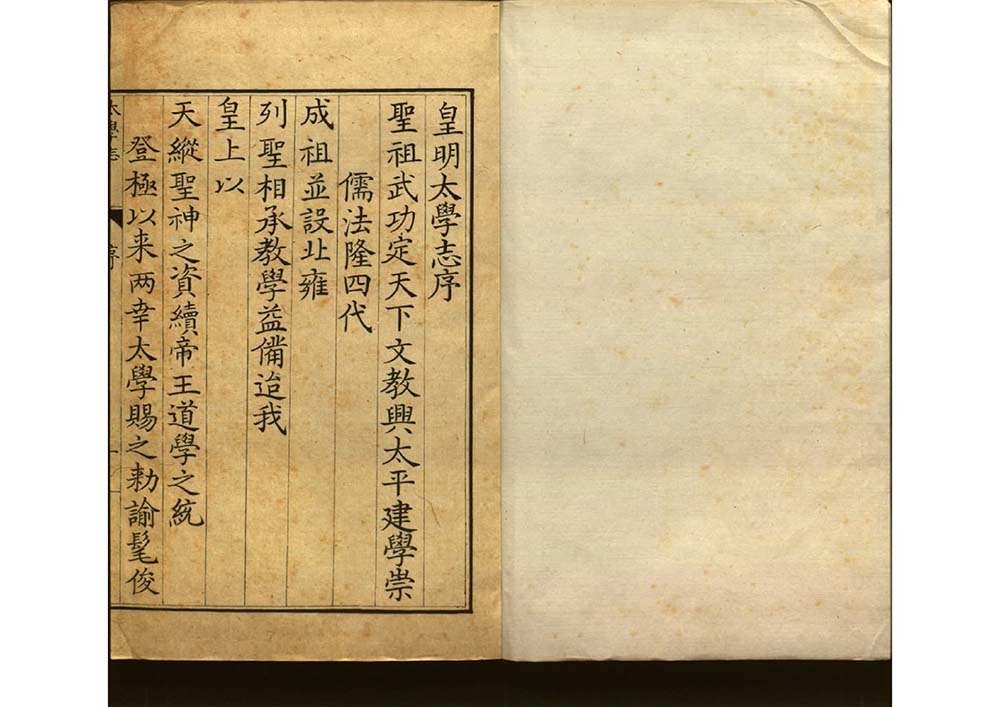 皇明太學志序
聖祖武功定天下文教興太平建學崇
儒法隆四代
成祖並設北雍
列聖相承教學益備迨我
皇上以
天縱聖神之資續帝王道學之統
登極以来两幸太學賜之勑諭髦俊
太學志
序
一